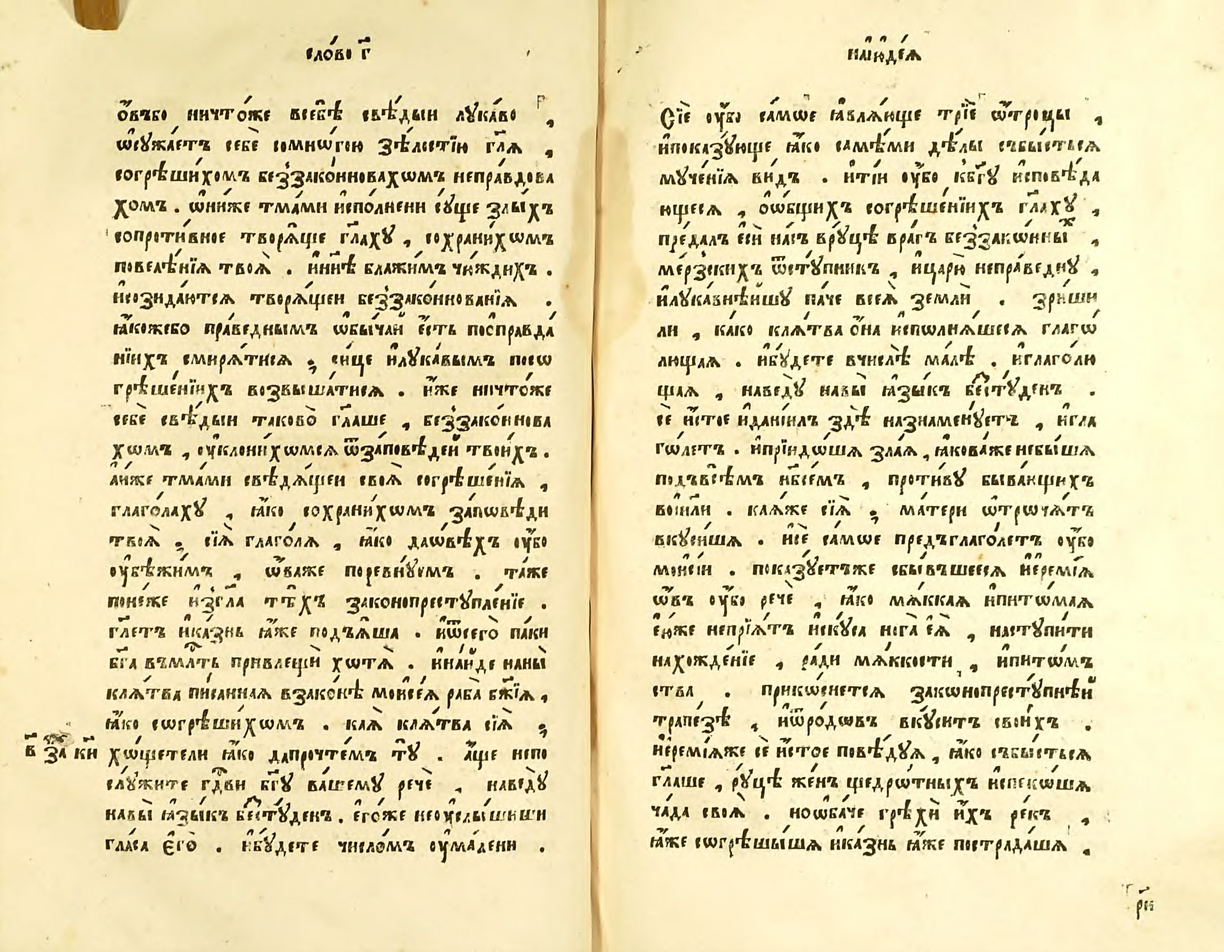 сло́во г҃
ѻу҆́бѡ ничто́же всебѣ̀ свѣ́дыи лꙋка́во ,
ѡ҆сꙋжа́етъ себѐ сомно́гою ѕѣ́лостїю гл҃ѧ ,
согрѣши́хомъ беззако́нновахѡмъ непра́вдова
хомъ . ѡ҆ниже тма́ми и҆спо́лнени сꙋ́ще ѕлы́хъ
сопроти́вное творѧ́ще гл҃ахꙋ , сохрани́хѡмъ
повелѣ́нїѧ твоѧ̀ . и҆нн҃ѣ блажи́мъ чю́ждихъ .
и҆созида́ютсѧ творѧ́щеи беззако́ннованїѧ .
ꙗ҆́кожебо пра́веднымъ ѡ҆бы́чай є҆́сть поспра́вда
нїихъ смирѧ́тисѧ ; си́це и҆лꙋка́вымъ посѡ
грѣше́нїихъ возвыша́тисѧ . и҆́же ничто́же
себѐ свѣ́дыи таково̀ гл҃аше , беззако́ннова
хѡмъ , ѹ҆клони́хѡмсѧ ѿза́повѣдей твои́хъ .
а҆́иже тма́ми свѣ́дѧщеи своѧ̀ согрѣше́нїѧ ,
глаго́лахꙋ , ꙗ҆́ко сохрани́хѡмъ за́пѡвѣди
твоѧ̀ ; сїѧ̀ глаго́лѧ , ꙗ҆́ко даѡ҆вѣ́хъ ѹ҆́бо
ѹ҆бѣжи́мъ , ѡ҆́важе поревнꙋ́ѥмъ . та́же
поне́же и҆згл҃а тѣ́хъ законопрестꙋпле́нїе .
гл҃етъ и҆ка́знь ꙗ҆́же подъѧ́ша . и҆ѿсего̀ па́ки
бг҃а въмл҃ть привлещѝ хотѧ̀ . и҆на́йде наны̀
клѧ́тва пи́саннаѧ взако́нѣ моѵсе́ѧ раба̀ бж҃їѧ ,
ꙗ҆́ко сѡгрѣши́хѡмъ . каѧ̀ клѧ́тва сїѧ̀ ;
в҃ за́ к҃и
хо́щетели ꙗ҆́ко да́прочтемъ тꙋ̀ . а҆́ще непо
слꙋ́жите гдв҃и бг҃ꙋ ва́шемꙋ речѐ , наведꙋ̀
навы̀ ꙗ҆зы́къ бестꙋ́денъ . є҆го́же неѹ҆слы́шиши
гла́са є҆го̀ . и҆бꙋ́дете число́мъ ѹ҆ма́лени .
наїю҆де́ѧ
Сїе ѹ҆́бо са́мѡе ꙗ҆влѧ́юще трїѐ ѡ҆́троцы ,
и҆показꙋ́юще ꙗ҆́ко самѣ́ми дѣ́лы събы́стьсѧ
мꙋче́нїѧ ви́дъ . и҆ті́и ѹ҆́бо кбг҃ꙋ и҆сповѣ́да
ющесѧ , оѡ҆́бщихъ согрѣше́нїихъ гл҃ахꙋ ,
преда́лъ є҆сѝ на́съ врꙋ́цѣ вра́гъ беззако́нныⷯ ,
ме́рзскихъ ѿстꙋ́пникъ , и҆царю̀ непра́веднꙋ ,
и҆лꙋка́внѣйшꙋ па́че всеѧ̀ землѝ . зри́ши
ли , ка́ко клѧ́тва ѻ҆́на и҆сполнѧ́шесѧ глаго́
люща́ѧ . и҆бꙋ́дете вчислѣ̀ ма́лѣ . и҆глаго́лю
щаѧ , наведꙋ̀ навы̀ ꙗ҆зы́къ бестꙋ́денъ .
се и҆́стое и҆дані́илъ здѣ̀ назнаменꙋ́етъ , и҆гла
го́летъ . и҆прїидо́ша ѕла́ѧ , ꙗ҆кова́же небы́ша
подъвсѣ́мъ нб҃семъ , проти́вꙋ быва́ющихъ
воі҆и҃ли . ка́ѧже сїѧ̀ ; ма́тери ѡ҆троча́тъ
вкꙋси́ша . и҆се́ са́мѡе предъглаго́летъ ѹ҆́бо
мои҆сі́и . пока́зꙋетъже сбы́вшеесѧ і҆еремі́ѧ
ѡ҆́въ ѹ҆́бо речѐ , ꙗ҆́ко мѧ́ккаѧ и҆пито́маѧ
є҆ю́же непрїѧ́тъ и҆скꙋса нога̀ є҆ѧ̀ , настꙋпи́ти
нахожде́нїе , ра́ди мѧ́ккости , и҆пито́мъ
ства . прикоснетсѧ законопрестꙋ́пнѣй
трапе́зѣ , и҆ѿро́довъ вкꙋ́ситъ свои́хъ .
і҆еремі́ѧже се и҆́стое повѣ́дꙋѧ , ꙗ҆́ко събы́стьсѧ
гл҃аше , рꙋ́цѣ же́нъ щедро́тныхъ и҆спеко́ша
ча́да своѧ̀ . ноѡ҆ба́че грѣхѝ и҆́хъ ре́къ ,
ꙗ҆́же согрѣши́шѧ и҆ка́знь ꙗ҆́же пострада́шѧ ,
ри҃